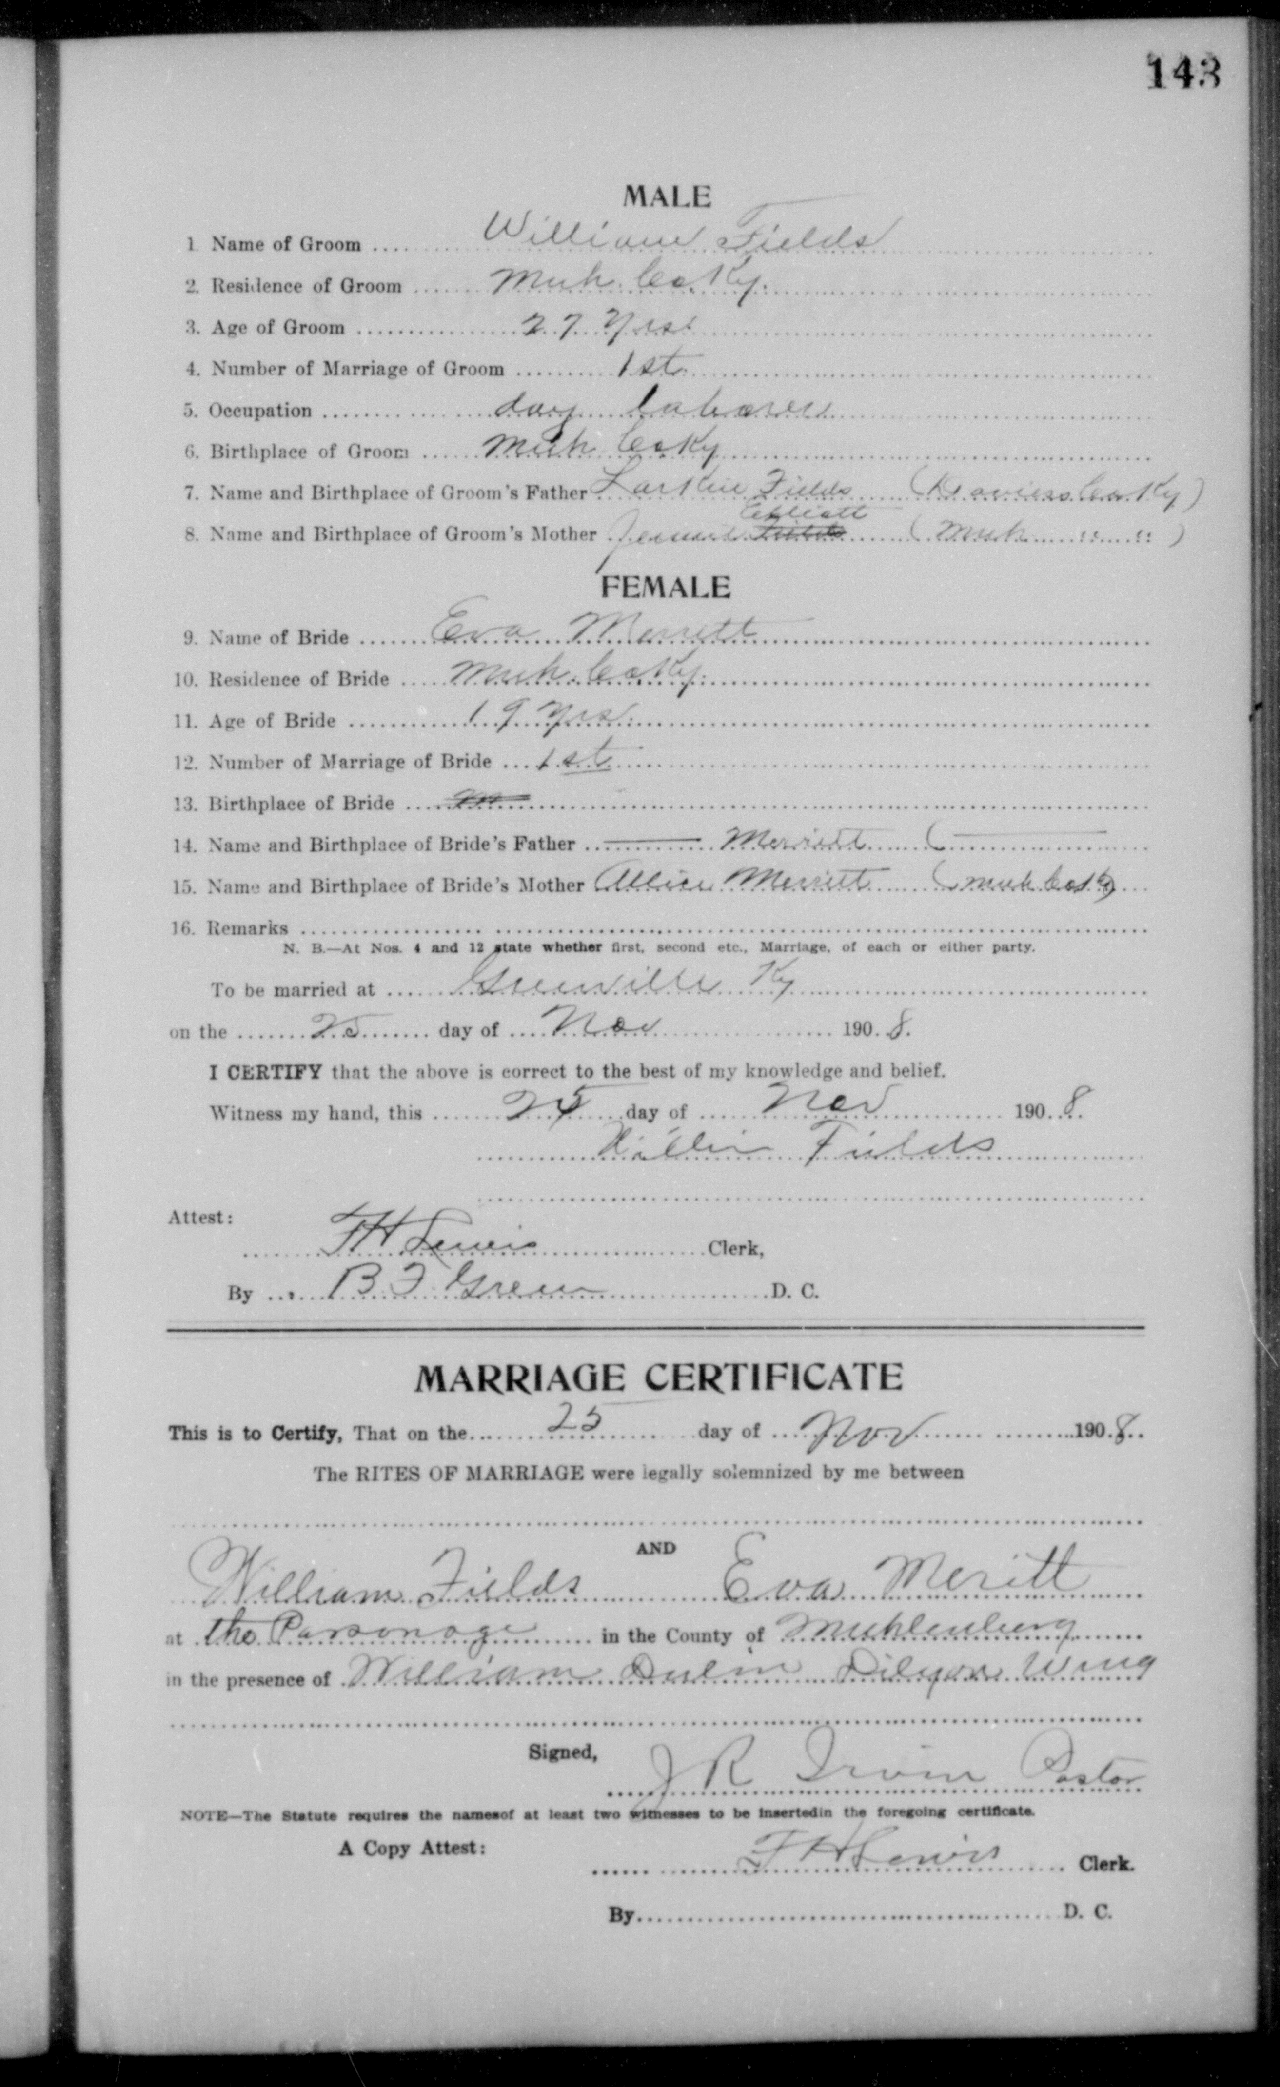 143
MALE
1 Name of Groom .... William Fields
2. Residence of Groom ...... Muh. Co. Ky.
3. Age of Groom ................ 27 Yrs.
4. Number of Marriage of Groom ......... 1st
5. Occupation ................ day laborer
6. Birthplace of Groom ...... Muh Co Ky
7. Name and Birthplace of Groom's Father Larkin Fields (Daviess Co. Ky)
Elliott
8. Name and Birthplace of Groom's Mother Jennie Fields (Muh " ")
FEMALE
9. Name of Bride ....... Eva Merrett
10. Residence of Bride .... Muh. Co Ky.
11. Age of Bride ........... 19 Yrs.
12. Number of Marriage of Bride ... 1st
13. Birthplace of Bride .... M
14. Name and Birthplace of Bride's Father .. —— Merritt (——
15. Name and Birthplace of Bride's Mother Allice Merritt (Muh Co Ky)
16. Remarks
N. B.—At Nos. 4 and 12 state whether first, second etc., Marriage, of each or either party.
To be married at ...... Greenville Ky
on the ....... 25 ....... day of .... Nov ........ 190.8.
I CERTIFY that the above is correct to the best of my knowledge and belief.
Witness my hand, this ....... 25 ....day of ...... Nov ........ 190.8.
Willie Fields
Attest:
T H Lewis ........ Clerk,
By ... B F Green ........ D. C.
MARRIAGE CERTIFICATE
This is to Certify, That on the..... 25 ..... day of .... Nov ........ 190.8..
The RITES OF MARRIAGE were legally solemnized by me between
AND
William Fields Eva Meritt
at the Parsonage ...... in the County of Muhlenberg
in the presence of William Dulin Wing
Signed,
J R Irvin Pastor
NOTE—The Statute requires the namesof at least two witnesses to be insertedin the foregoing certificate.
A Copy Attest:
T H Lewis ...... Clerk.
By........ D. C.